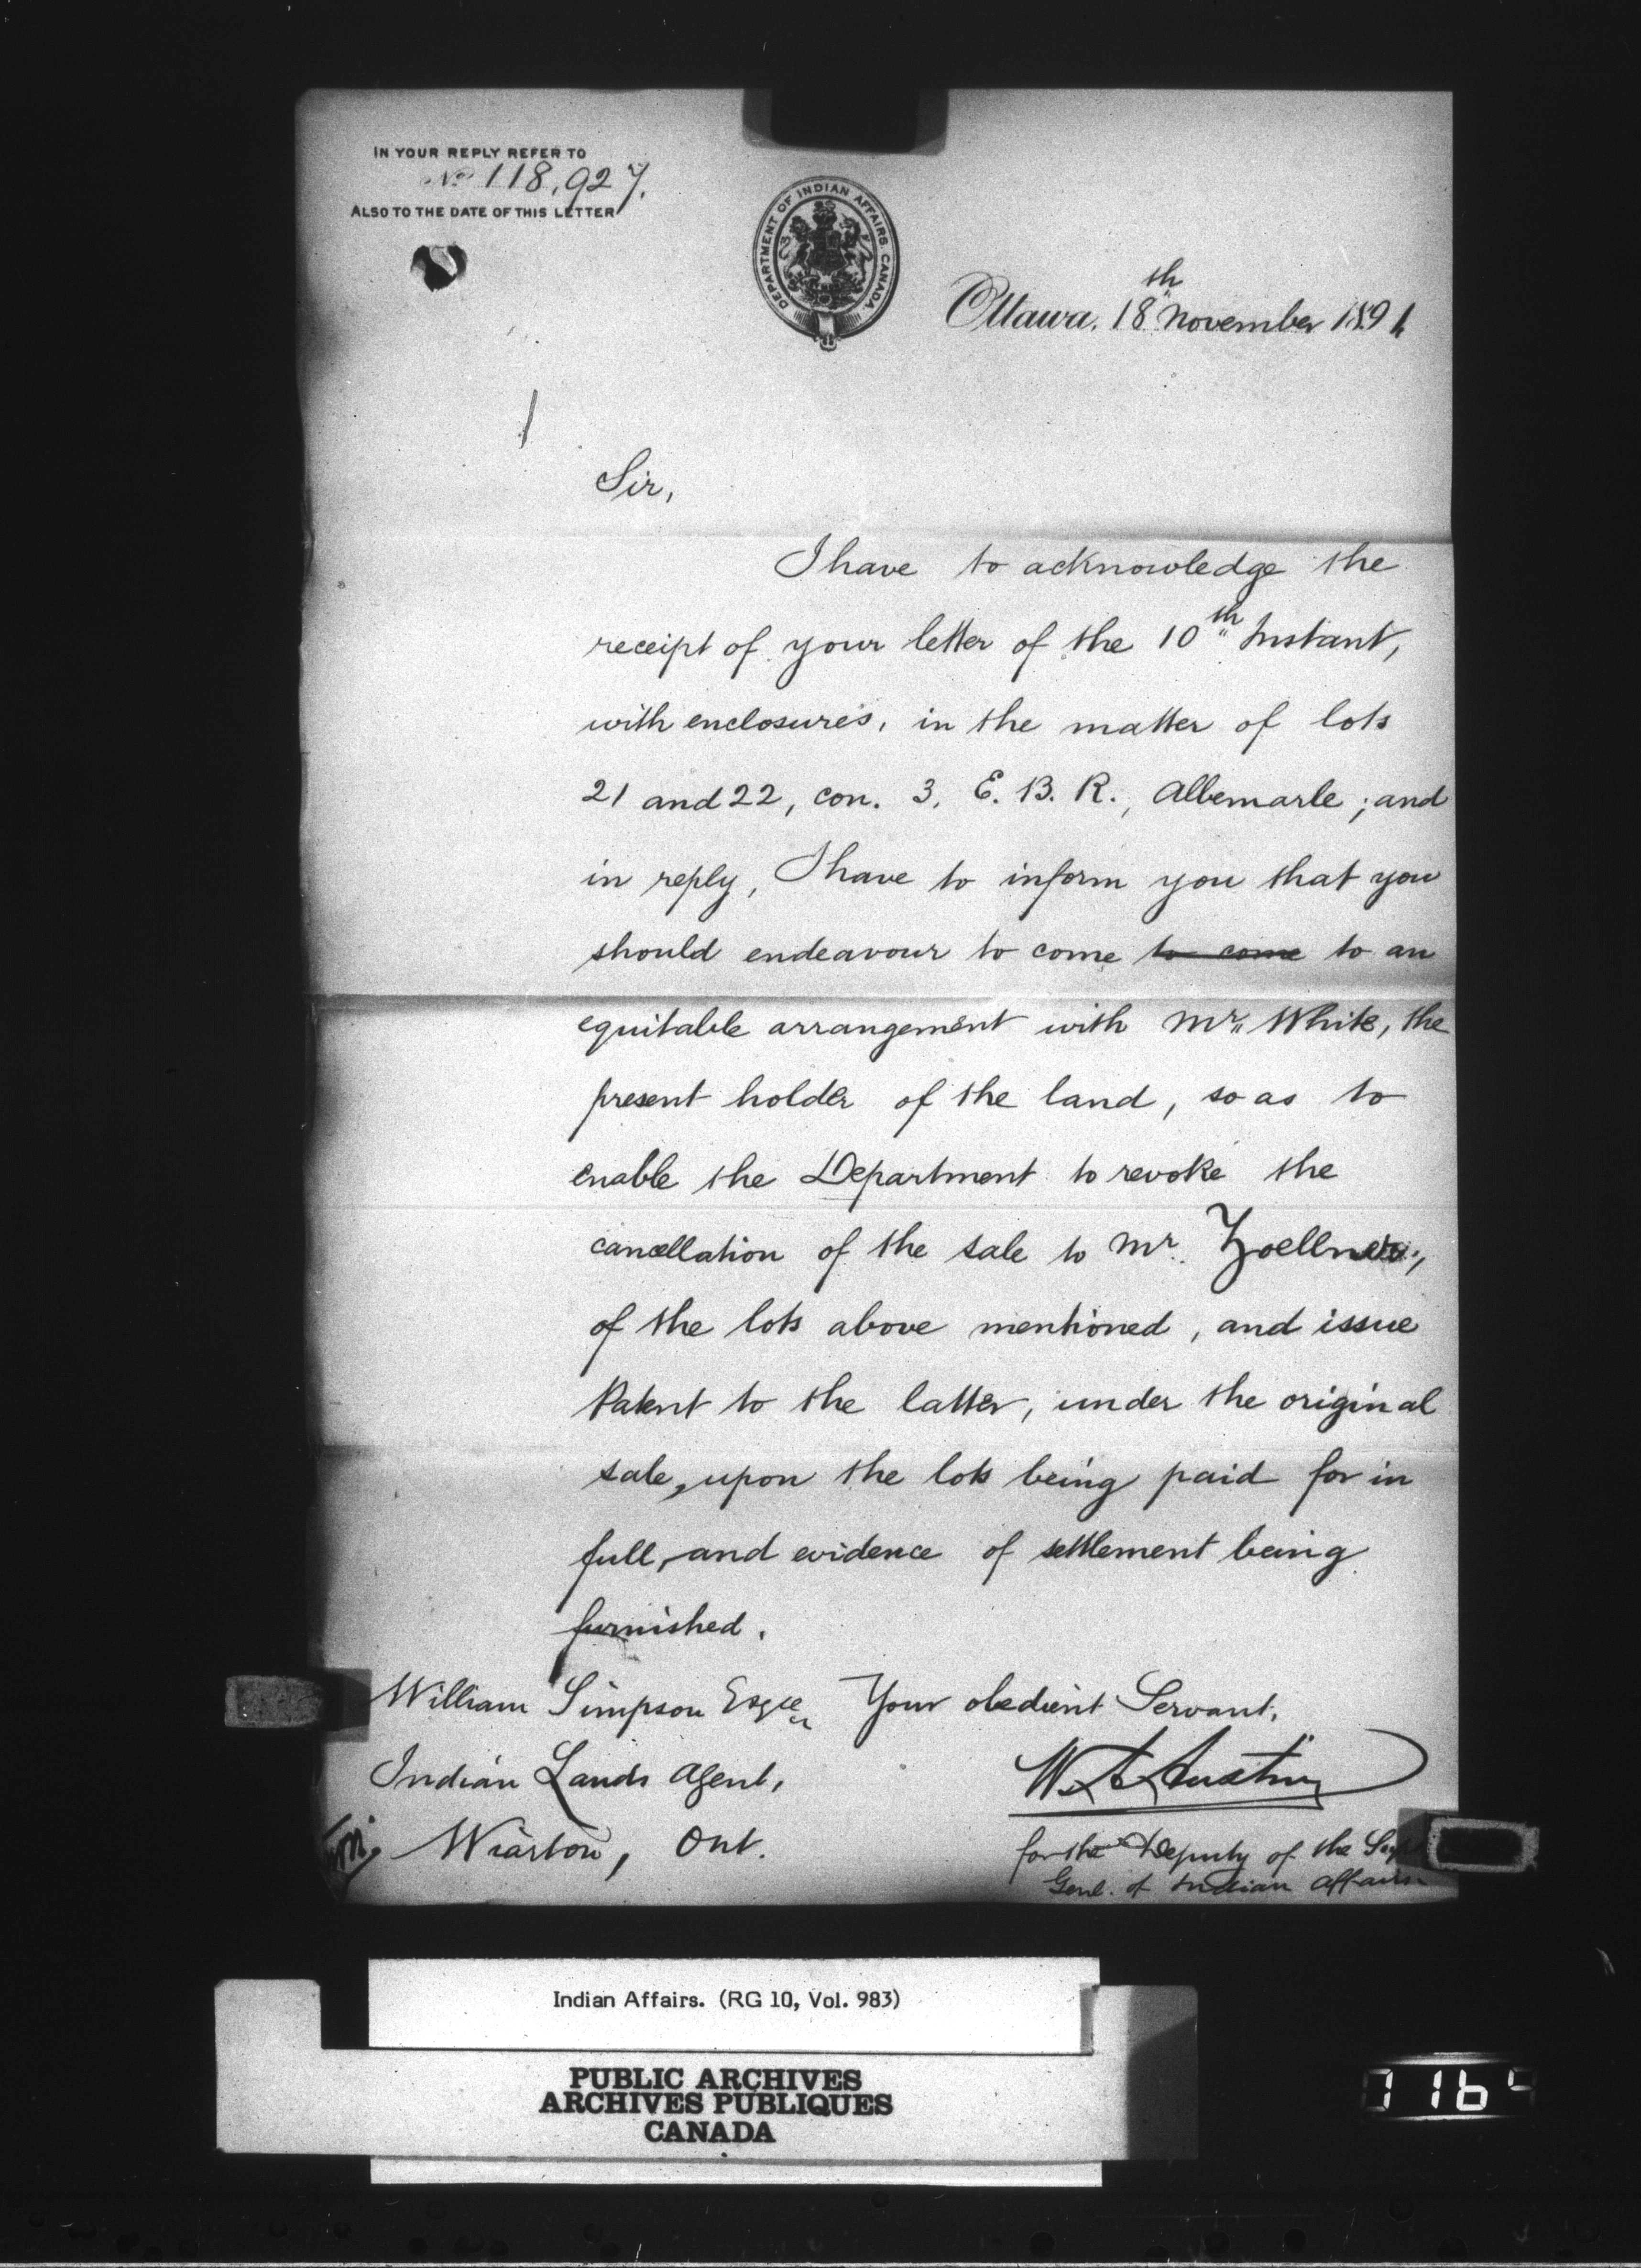 IN YOUR REPLY REFER TO
No 118,927.
ALSO TO THE DATE OF THIS LETTER
DEPARTMENT OF INDIAN AFFAIRS. CANADA
Ottawa, 18th November 1891,
Sir,
I have to acknowledge the
receipt of your letter of the 10th Instant,
with enclosures, in the matter of lots
21 and 22, con. 3, E. B. R., Albemarle; and
in reply, I have to inform you that you
should endeavour to come to come to an
equitable arrangement with Mr. White, the
present holder of the land, so as to
enable the Department to revoke the
cancellation of the sale to Mr. Zoellner,
of the lots above mentioned, and issue
Patent to the latter, under the original
sale, upon the lots being paid for in
full, and evidence of settlement being
furnished.
William Simpson Esqre Your obedient Servant,
Indian Lands Agent, W. A. Austin
Wiarton, Ont. for the Deputy of the Sup
Genl. of Indian Affairs
Indian Affairs. (RG 10, Vol. 983)
PUBLIC ARCHIVES
ARCHIVES PUBLIQUES
CANADA